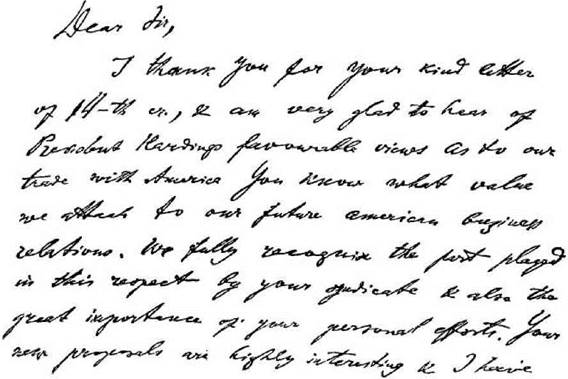 Dear Sir,
I thank you for your kind letter
of 14-th, & am very glad to hear of
President Hardings favourable views as to our
trade with America You know what value
we attach to our future american business
relations. We fully recognize the part played
in this respect by your syndicate & also the
great importance of your personal efforts. Your
new proposals are highly interesting & I have